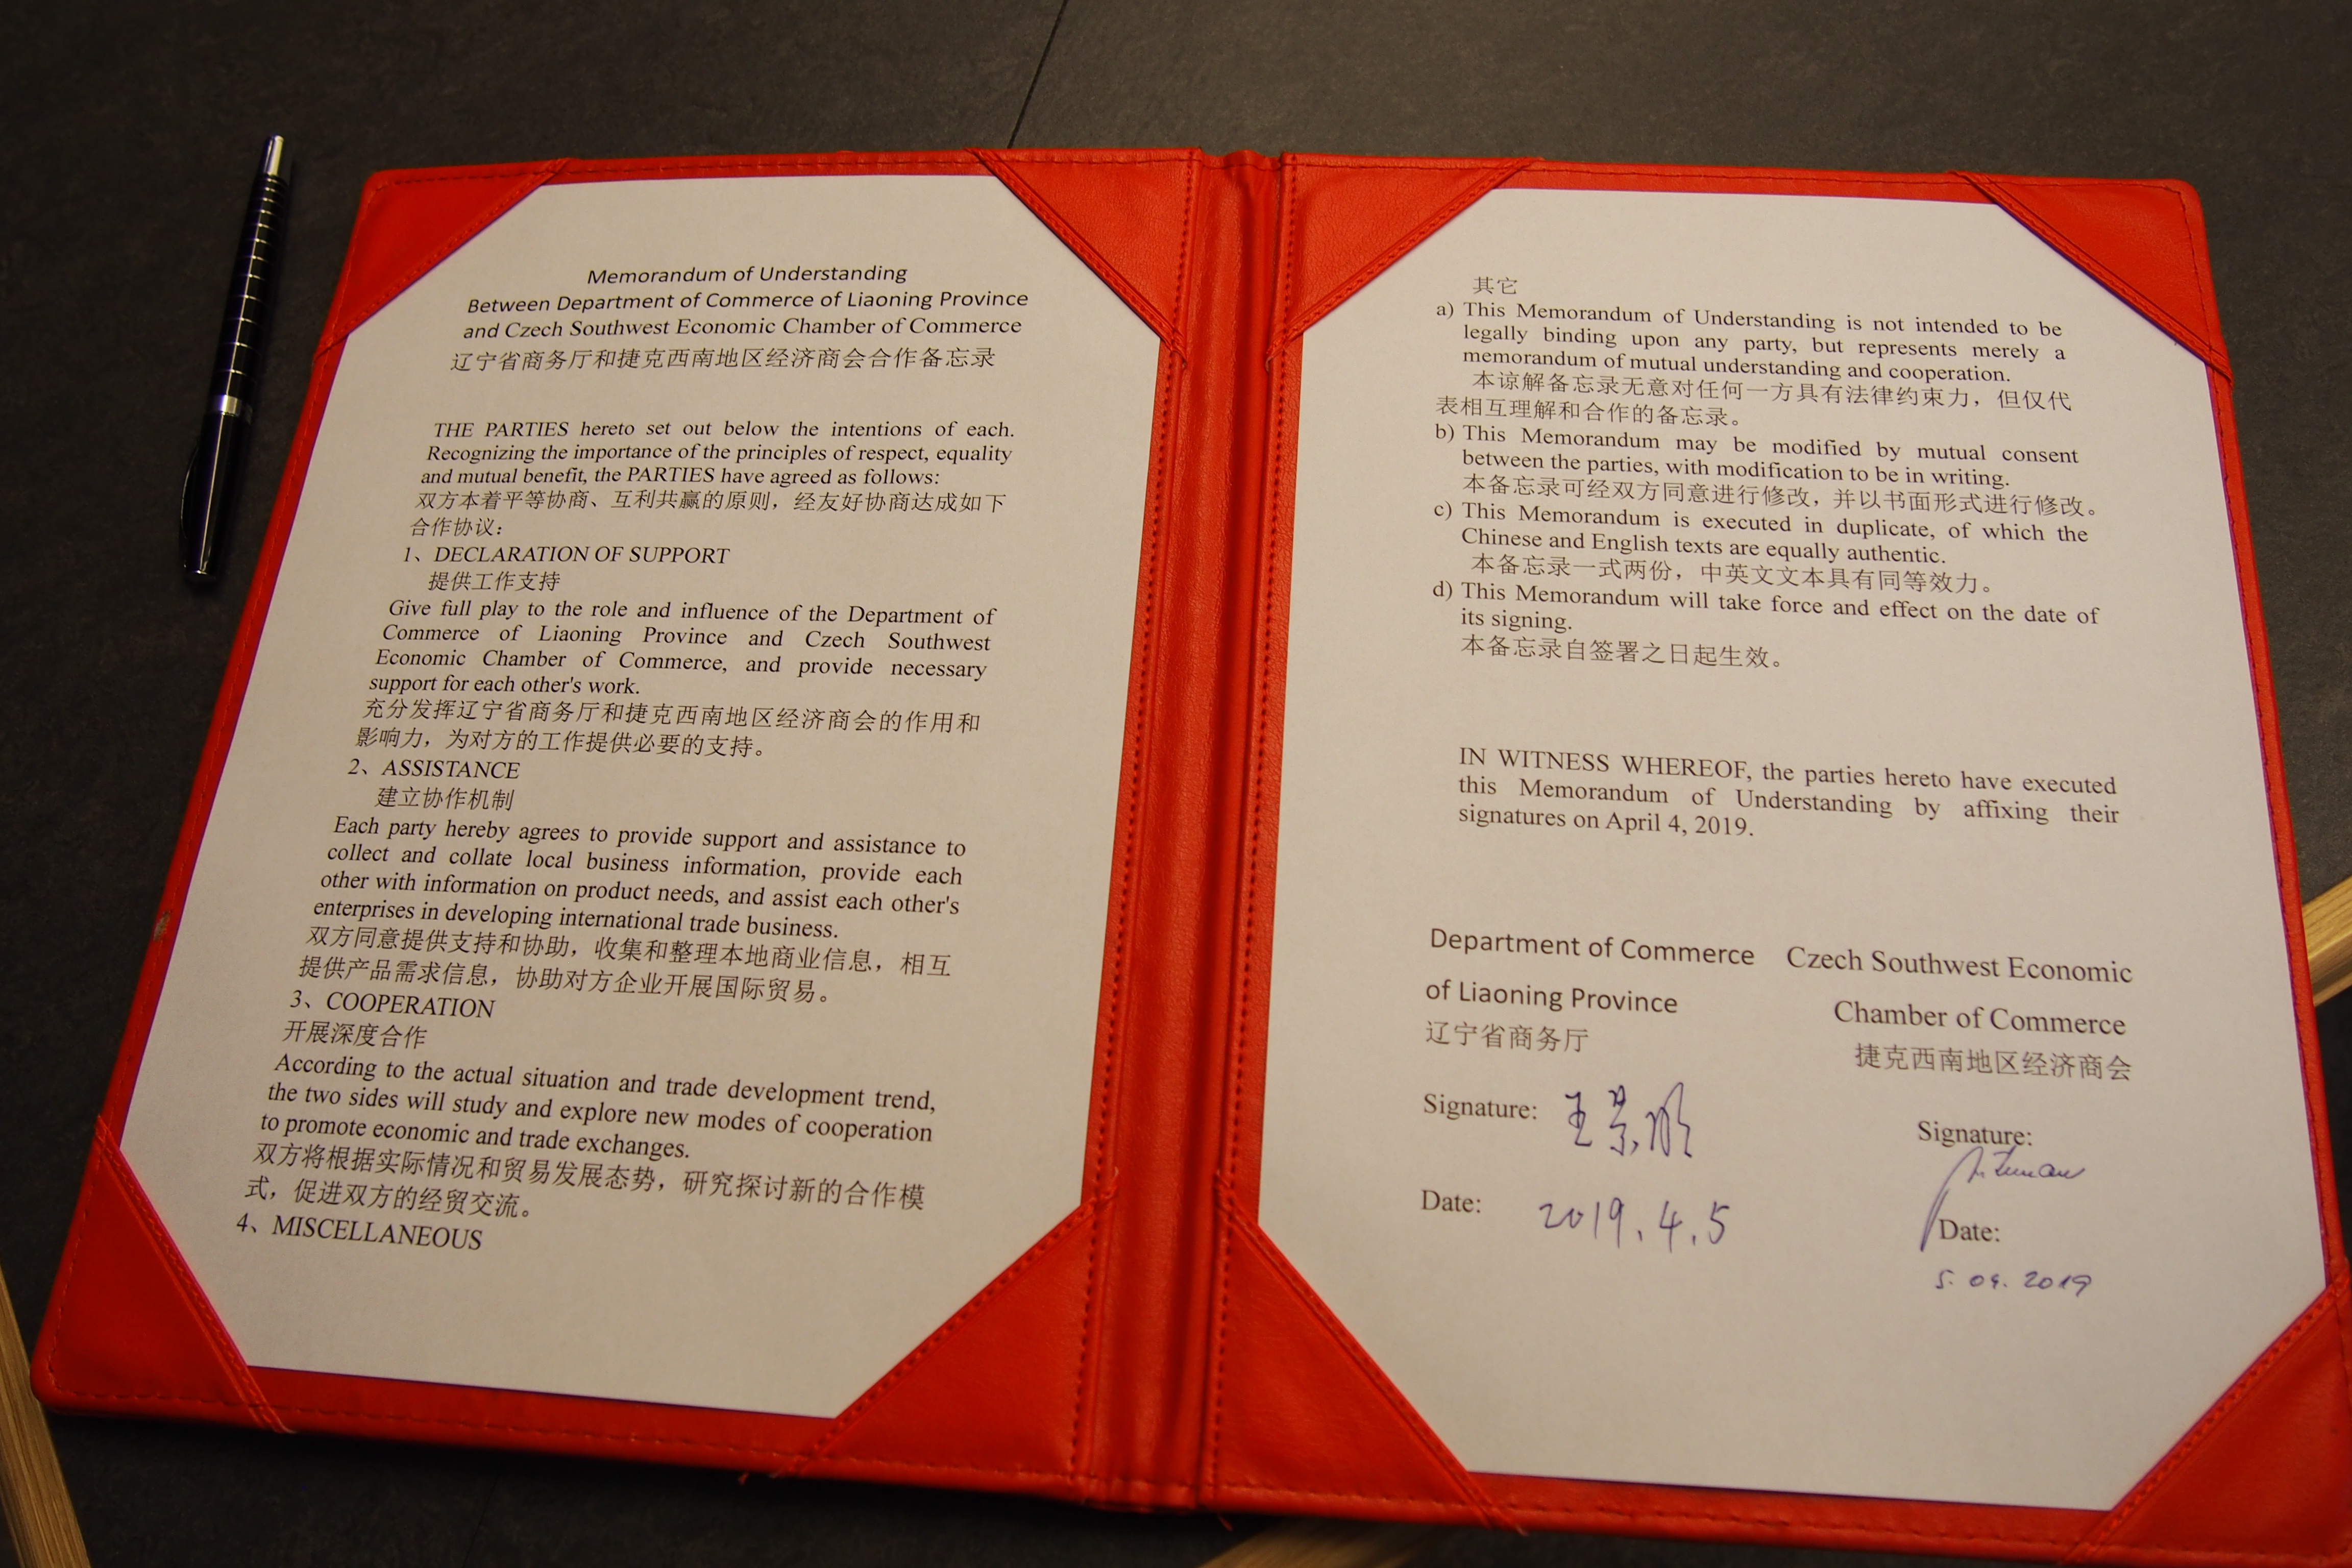 Memorandum of Understanding
Between Department of Commerce of Liaoning Province
and Czech Southwest Economic Chamber of Commerce
辽宁省商务厅和捷克西南地区经济商会合作备忘录
THE PARTIES hereto set out below the intentions of each.
Recognizing the importance of the principles of respect, equality
and mutual benefit, the PARTIES have agreed as follows:
双方本着平等协商、互利共赢的原则，经友好协商达成如下
合作协议：
1、DECLARATION OF SUPPORT
提供工作支持
Give full play to the role and influence of the Department of
Commerce of Liaoning Province and Czech Southwest
Economic Chamber of Commerce, and provide necessary
support for each other's work.
充分发挥辽宁省商务厅和捷克西南地区经济商会的作用和
影响力，为对方的工作提供必要的支持。
2、ASSISTANCE
建立协作机制
Each party hereby agrees to provide support and assistance to
collect and collate local business information, provide each
other with information on product needs, and assist each other's
enterprises in developing international trade business.
双方同意提供支持和协助，收集和整理本地商业信息，相互
提供产品需求信息，协助对方企业开展国际贸易。
3、COOPERATION
开展深度合作
According to the actual situation and trade development trend,
the two sides will study and explore new modes of cooperation
to promote economic and trade exchanges.
双方将根据实际情况和贸易发展态势，研究探讨新的合作模
式，促进双方的经贸交流。
4、MISCELLANEOUS
其它
a) This Memorandum of Understanding is not intended to be
legally binding upon any party, but represents merely a
memorandum of mutual understanding and cooperation.
本谅解备忘录无意对任何一方具有法律约束力，但仅代
表相互理解和合作的备忘录。
b) This Memorandum may be modified by mutual consent
between the parties, with modification to be in writing.
本备忘录可经双方同意进行修改，并以书面形式进行修改。
c) This Memorandum is executed in duplicate, of which the
Chinese and English texts are equally authentic.
本备忘录一式两份，中英文文本具有同等效力。
d) This Memorandum will take force and effect on the date of
its signing.
本备忘录自签署之日起生效。
IN WITNESS WHEREOF, the parties hereto have executed
this Memorandum of Understanding by affixing their
signatures on April 4, 2019.
Department of Commerce
of Liaoning Province
辽宁省商务厅
Signature:
Date: 2019.4.5
Czech Southwest Economic
Chamber of Commerce
捷克西南地区经济商会
Signature:
Date:
5. 04. 2019